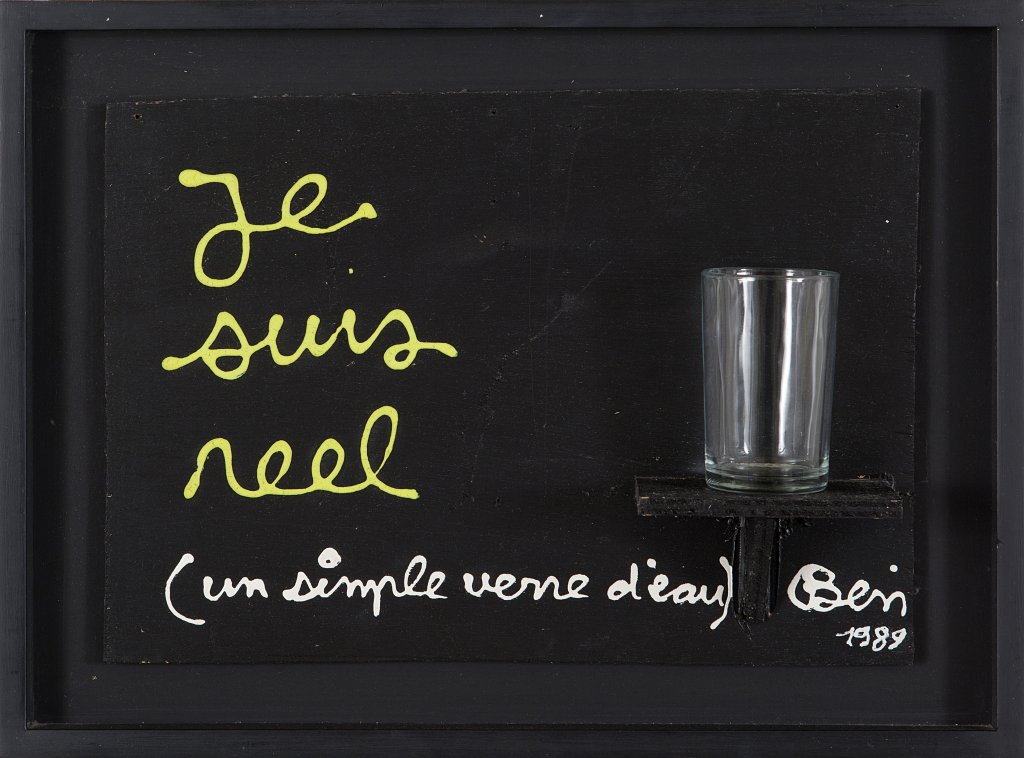 Je
suis
reel
(un simple verre d'eau) Ben
1989